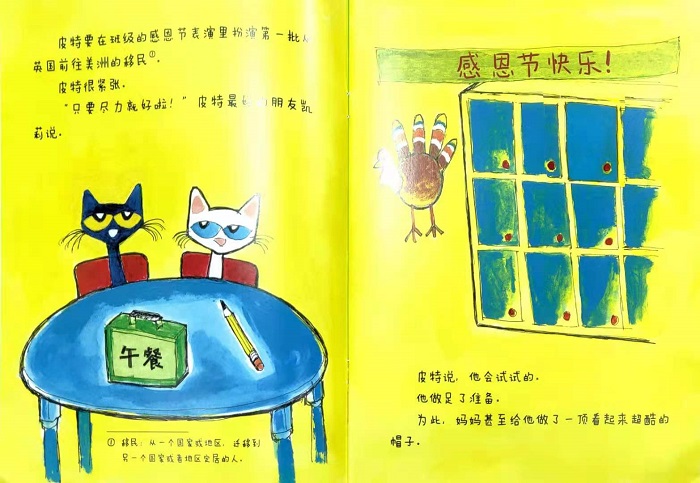 皮特要在班级的感恩节表演里扮演第一批从
英国前往美洲的移民①。
皮特很紧张。
“只要尽力就好啦！”皮特最好的朋友凯
莉说。
午餐
① 移民：从一个国家或地区，迁移到
另一个国家或者地区定居的人。
感恩节快乐！
皮特说，他会试试的。
他做足了准备。
为此，妈妈甚至给他做了一顶看起来超酷的
帽子。